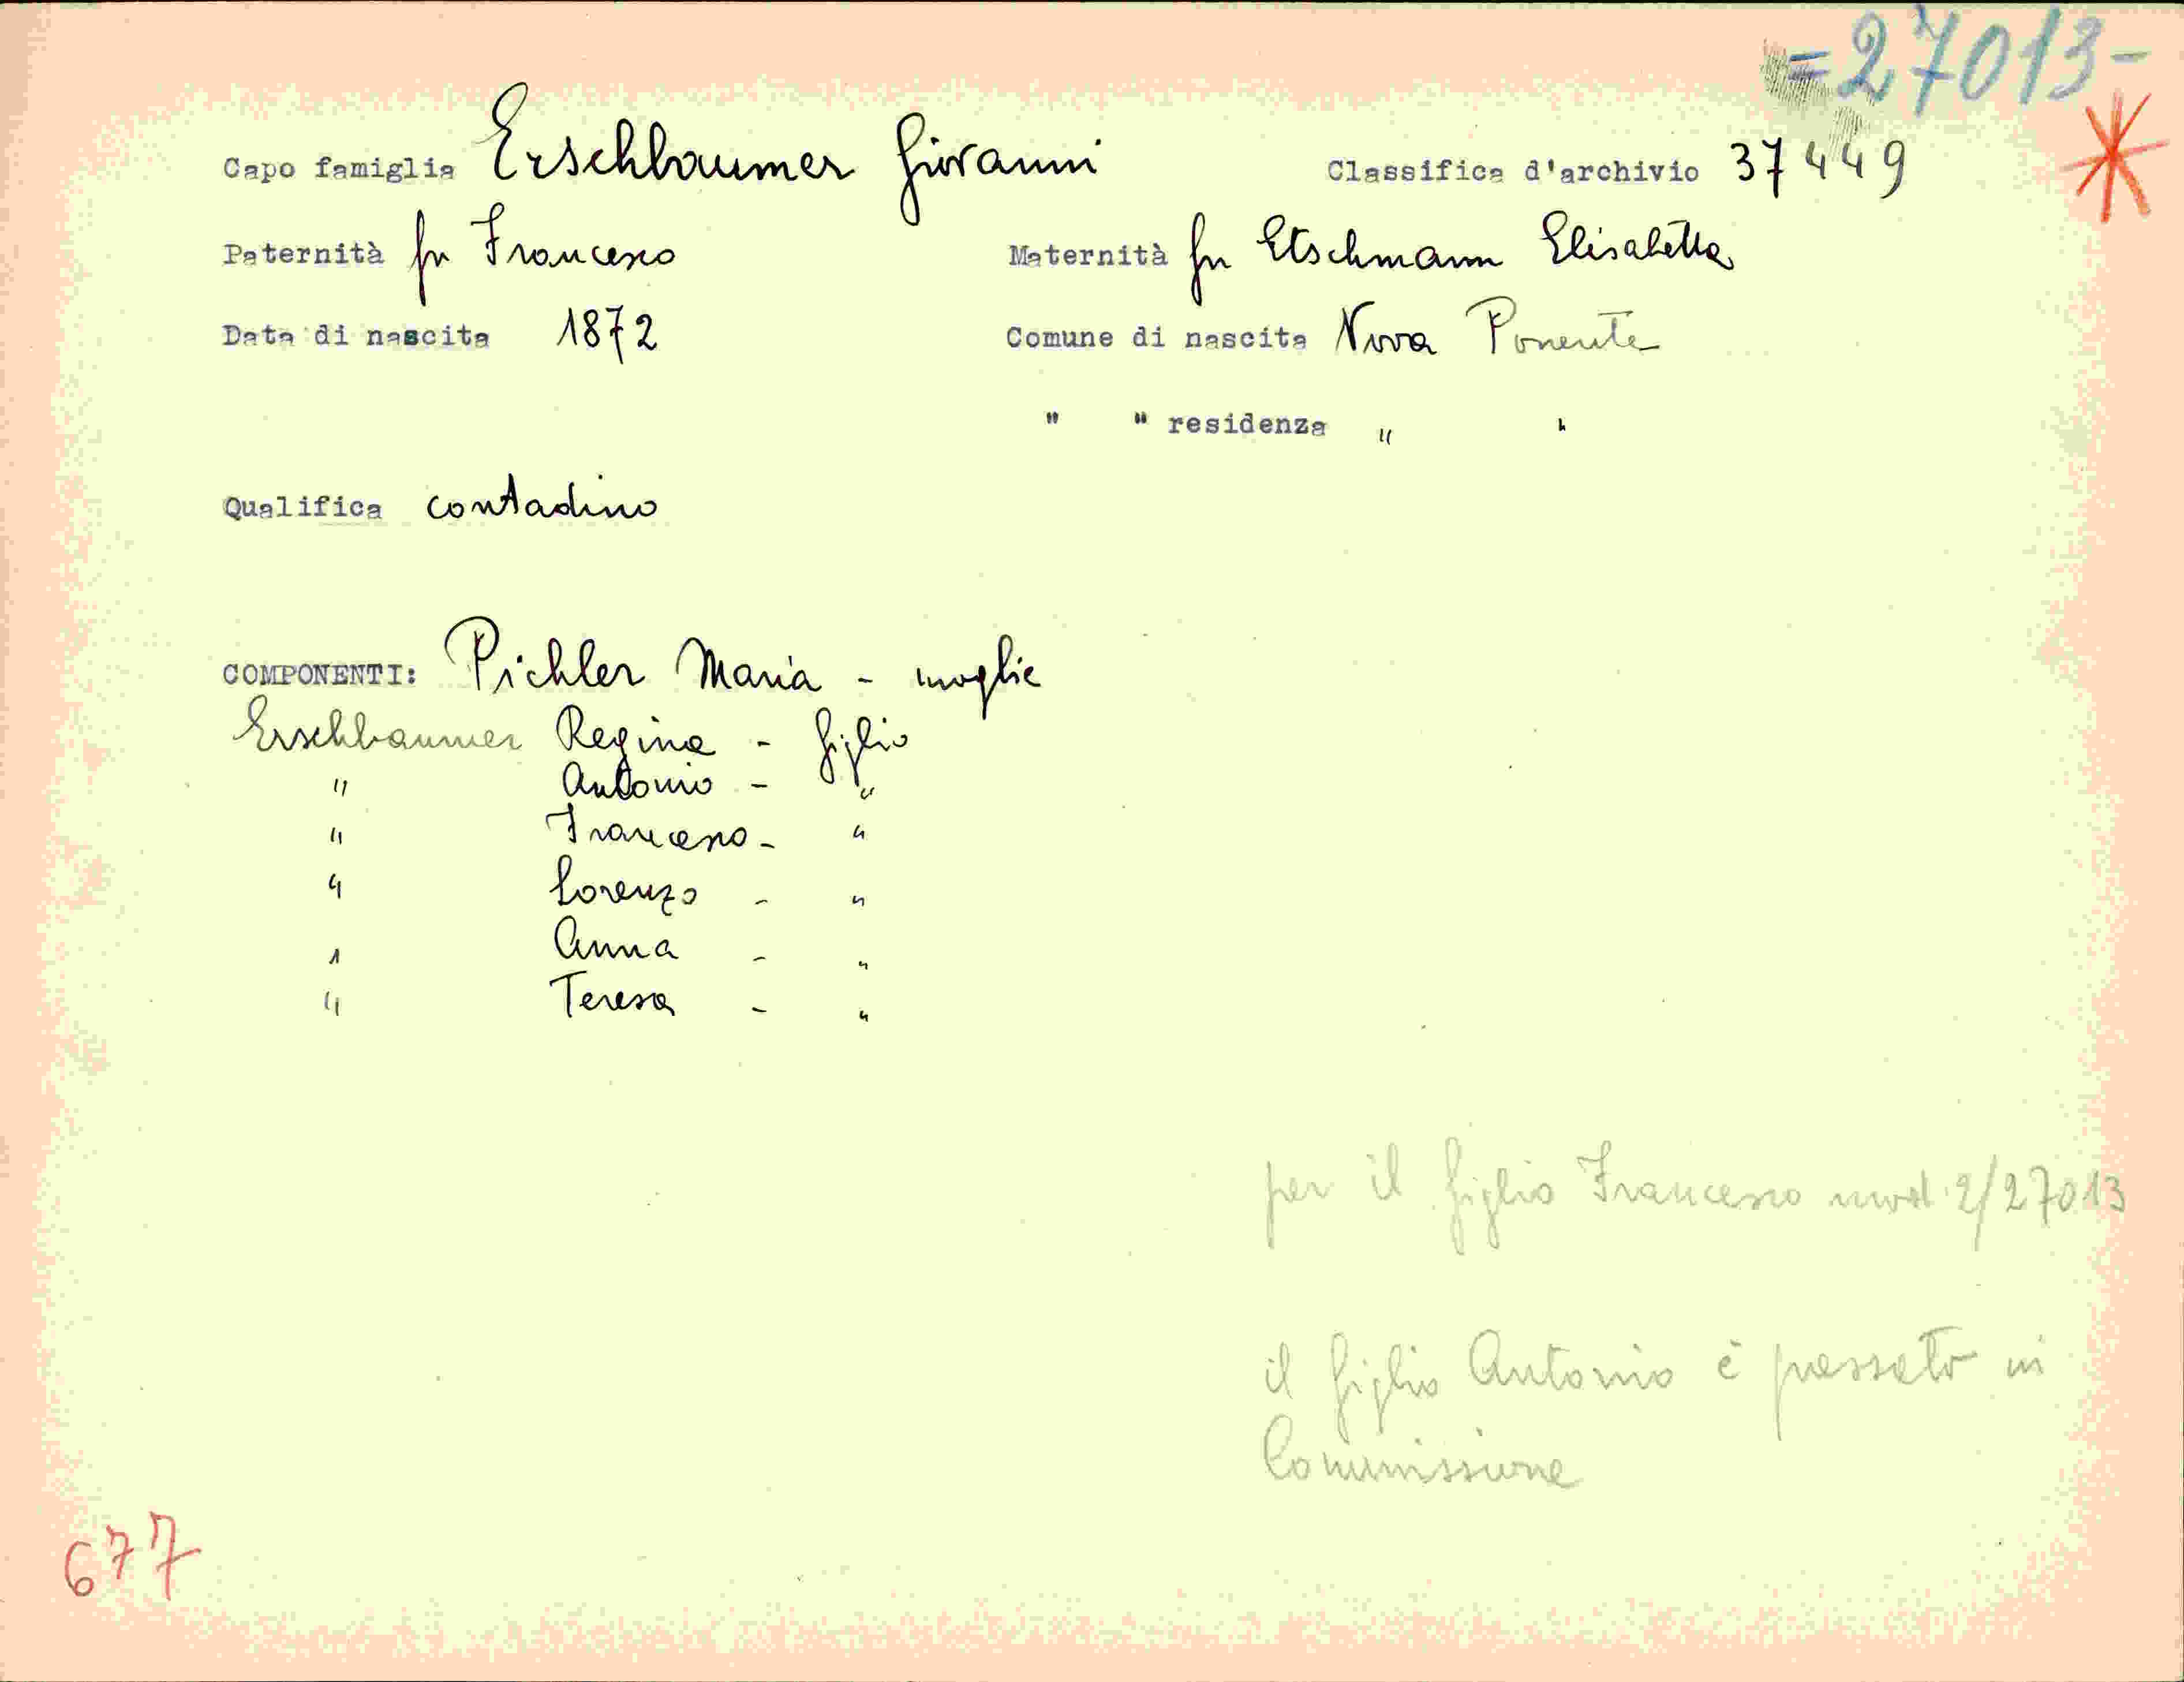 =27013-
Capo famiglia Erschbaumer Giovanni Classifica d'archivio 37449
Paternità fu Francesco Maternità fu Etschmann Elisabetta
Data di nascita 1872 Comune di nascita Nova Ponente
" " residenza " "
Qualifica contadino
COMPONENTI: Pichler Maria - moglie
Erschbaumer Regina - figlio
" Antonio - "
" Francesco - "
" Lorenzo - "
" Anna - "
" Teresa - "
per il figlio Francesco mod. 2/27013
il figlio Antonio è passato in
Commissione
677